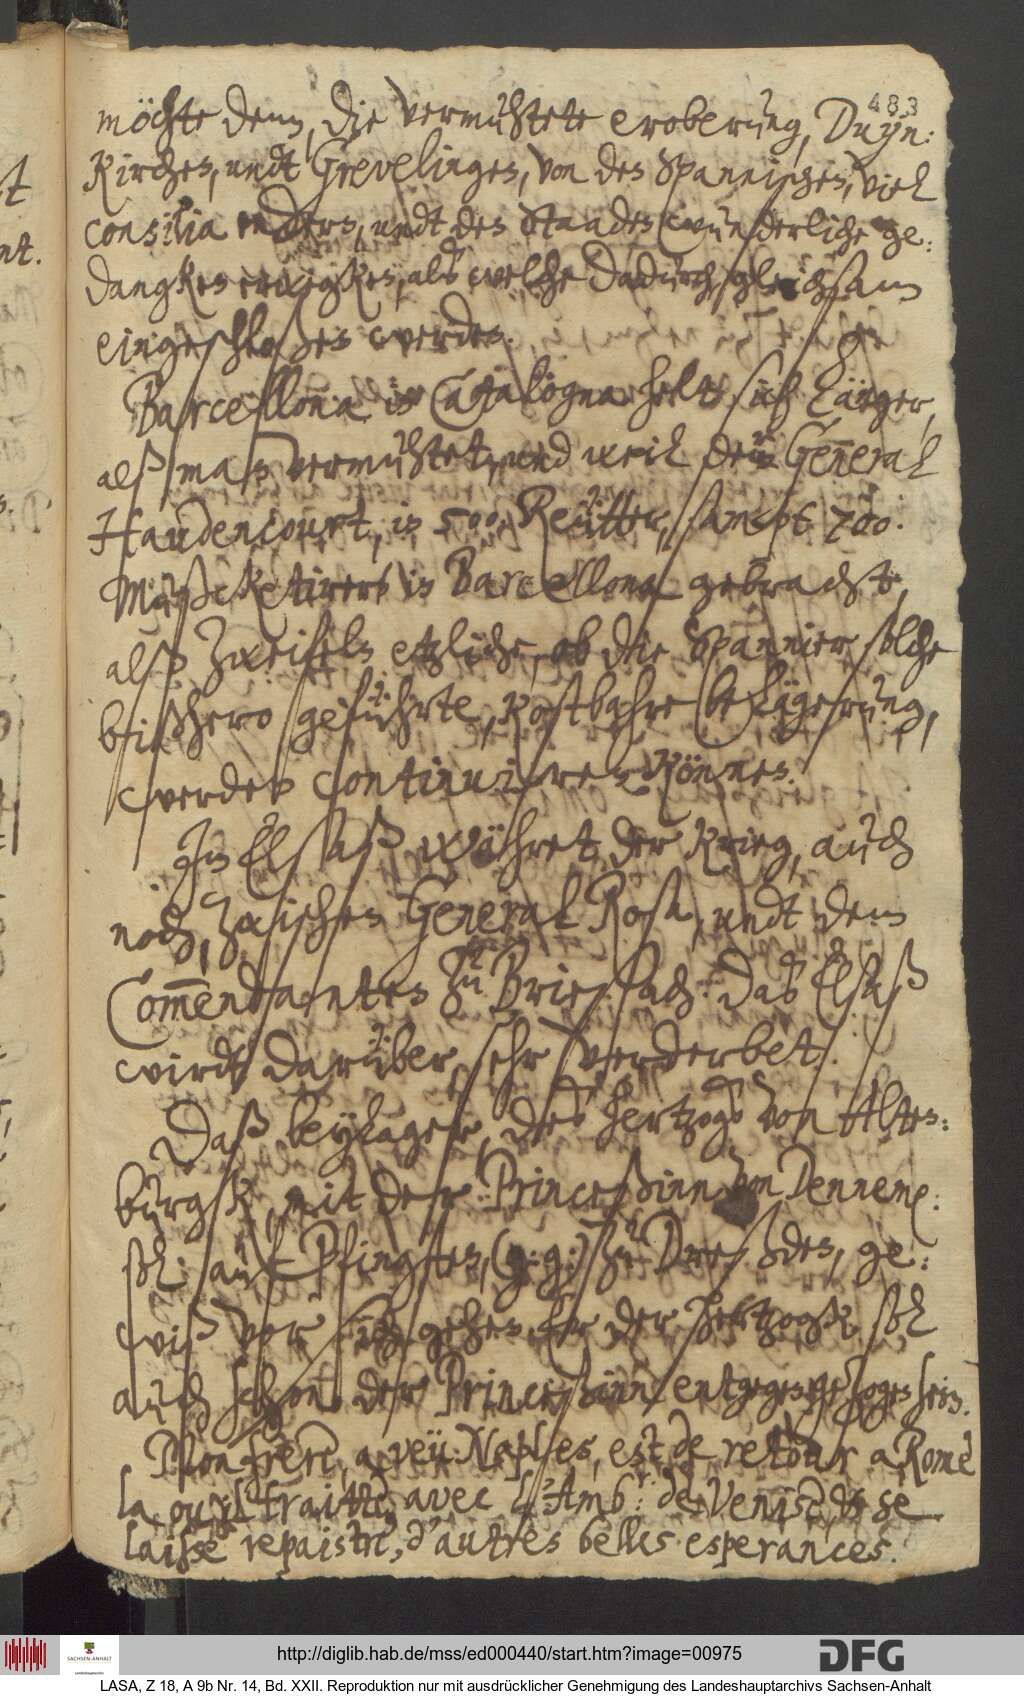 483
möchte denn, die vermuhtete eroberung, Duyn:
Kirchen, undt Grevelingen, von den Spannischen, viel
consilia endern, undt den Staaden wunderliche ge:
dangken erwegken, als welche dadurch, gleichsam
eingeschloßen werden.
Barcellona in Catalogna helt sich länger,
alß man vermuhtet, und weil der General
Haudencourt, in 500 Reütter, sampt 700.
Mußcketirern in Barcellona gebracht,
alß zweifeln etzliche, ob die Spannier solche
bißhero geführte, kostbahre belägerung,
werden continuiren können.
Jm Elsaß währet der krieg, auch
noch, zwischen General Rosa, undt dem
Com̅endanten zu Briesach. Das Elsaß
wirdt darüber, sehr verderbet.
Daß beylager, des hertzogs von Alten:
burgk, mit der Princeßinn von Dennem:
soll auf Pfingsten, (g. g.) zu Dresden, ge:
wiß vor sich gehen, Er der hertzogk soll
auch schon der Princeßinn entgegen gezogen sein.
Mon frere, a veü Naples, est de retour a Rome
la ou il traitte avec l'Amb.r: de Venise, & se
laisse repaistre, d'autres belles esperances.
http://diglib.hab.de/mss/ed000440/start.htm?image=00975
DFG
SACHSEN-ANHALT
LASA, Z 18, A 9b Nr. 14, Bd. XXII. Reproduktion nur mit ausdrücklicher Genehmigung des Landeshauptarchivs Sachsen-Anhalt